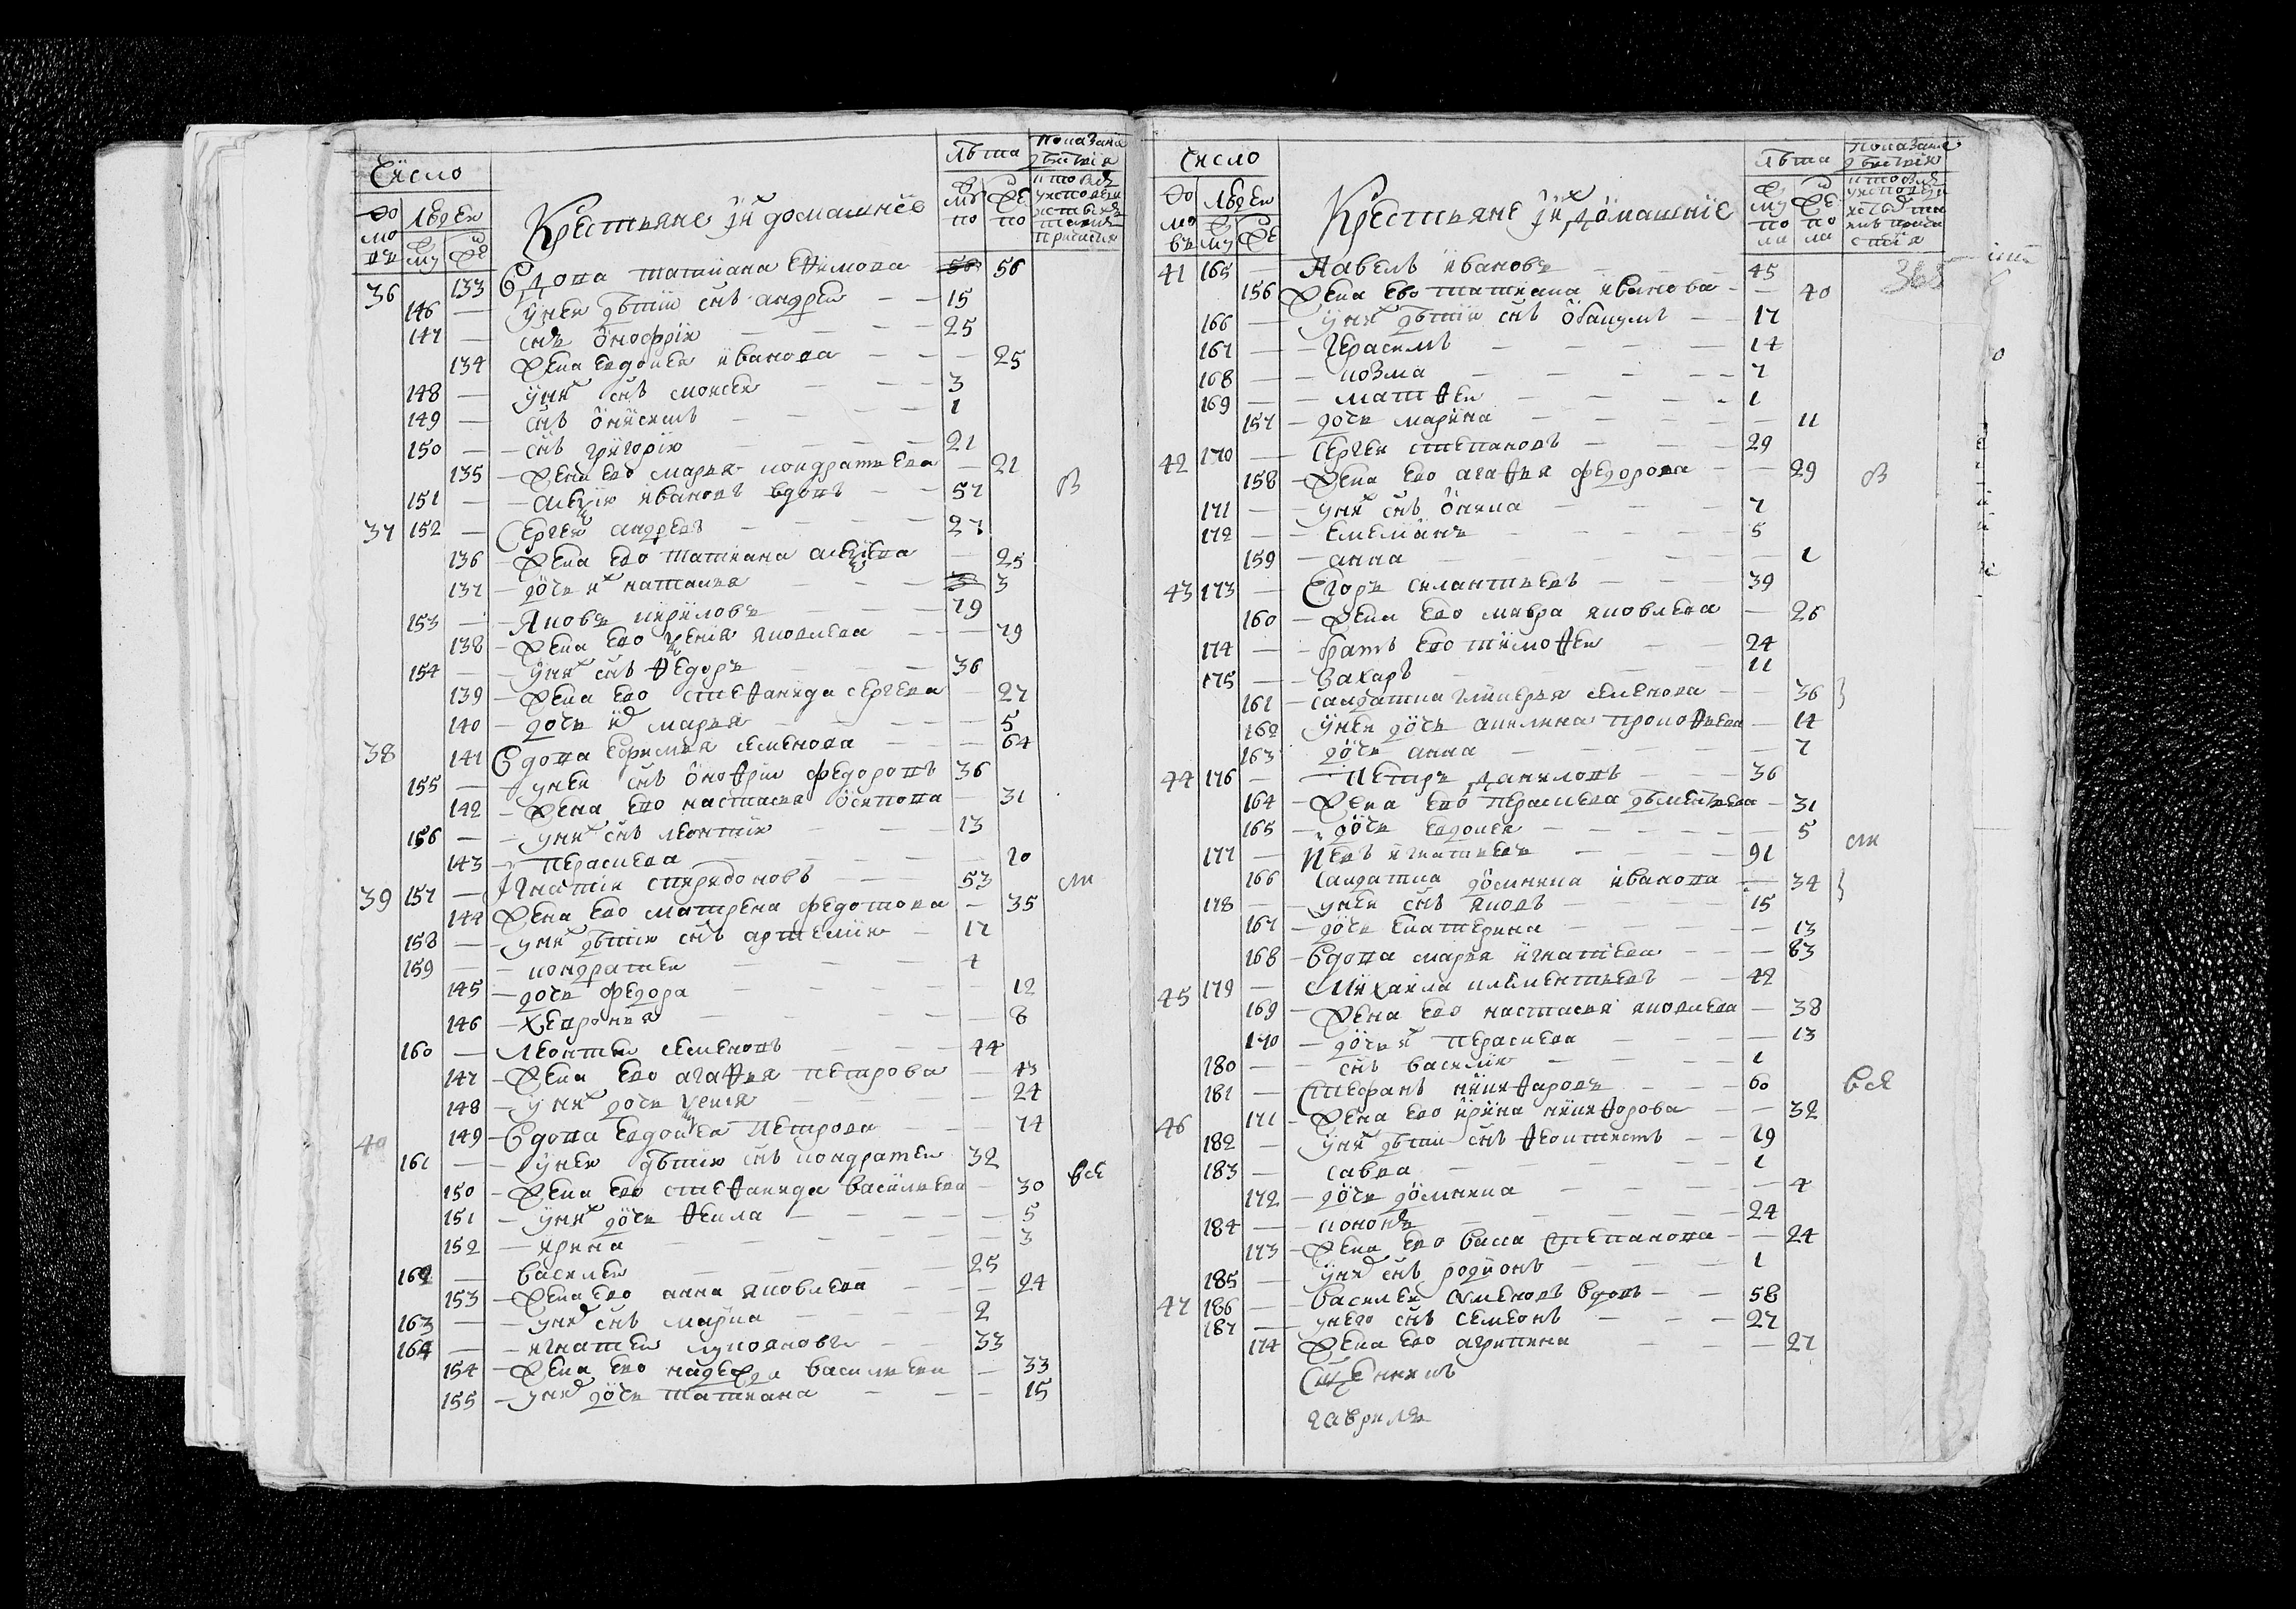 Число
Лѣта
показание
домовъ
людей
муж
же
Крестьяне и их домашнїе
36 133 Вдова татиана Ефимова 56 56
146 — у нея дѣтии снъ андреи — — 15
147 — снъ онофрии — — — 25
134 Жена евдокея иванова — — — 25
148 — у них снъ моисеи — — — 3
149 — снъ онисимъ — — — 1
150 — снъ григории — — — 21
135 — Жена ево марья кондратьева — 21
151 — алеѯіи ивановъ вдовъ — — 57
37 152 — Сергеи андреевъ — — — 27
136 — Жена ево татиана алеѯиева — 25
137 — дочь их наталья — — — 3 3
153 — Яковъ кириловъ — — — 79
138 — Жена ево ѯения яковлева — — 79
154 — у них снъ ѳедоръ — — — 36
139 — Жена ево стеѳанида сергева — 27
140 — дочь их марья — — — 5
38 141 Вдова ефимья семенова — — — 64
155 — у неи снъ оноѳрии федоровъ 36
142 — Жена ево настасья осипова — 31
156 — у них снъ леонтии — — 13
143 — парасковья
39 157 — Игнатии спиридоновъ — — 53 ст
144 Жена ево матрена федотова — 35
158 — у них дѣтии снъ артемии — 17
159 — кондратеи — — — 4
145 — дочь федора — — — 12
146 — Хеврония — — — 8
160 — Леонтеи семеновъ — — — 44
147 — Жена ево агаѳья петрова — 43
148 — у них дочь ѯения — — — 24
40 149 — Вдова евдокея петрова — — 74
161 — у неи дѣтии снъ кондратеи 32
150 — Жена ево стеѳанида васильева — 30 всѣ
151 — у них дочь ѳекла — — — 5
152 — ирина — — — 3
162 — василеи — — — 25
153 — Жена ево анна яковлева — — 24
163 — у них снъ марка — 2
164 — игнатеи лукояновъ — — 33
154 — Жена ево надежда васильева — 33
155 — у них дочь татиана — — — 15
Число
Лѣта
показание
домовъ
людей
Крестьяне и их домашнїе
365
41 165 — Павелъ ивановъ — — 45
156 Жена ево татиана иванова — — 40
166 — у них дѣтии снъ абакумъ — — 17
167 — Герасимъ — — — 14
168 — козма — — — 7
169 — матѳеи — — — 1
157 — дочь марина — — — 11
42 170 — Сергеи степановъ — — 29
158 — Жена ево агаѳья федорова — — 29
171 — у них снъ аника — — — 7
172 — емелиянъ — — — 5
159 — анна — — — 1
43 173 — Егоръ силантьевъ — — 39
160 — Жена ево мавра яковлева — 26
174 — братъ ево тимоѳеи — — 24
175 — Захаръ — — — 11
161 — салдатка гликерья семенова — — 36
162 у неи дочь акилина прокоѳьева — 14
163 дочь анна — — — 7
44 176 — Петръ даниловъ — — 36
164 — Жена ево парасковья дементьева — 31
165 — дочь евдокея — — — 5
177 — Иевъ игнатьевъ — — — 91 ст
166 салдатка домника иванова — 34
178 — у неи снъ яковъ — — — 15
167 — дочь екатерина — — — 13
168 — Вдова марья игнатьева — — — 83
45 179 — Михаила климентьевъ — — 42
169 — Жена ево настасья яковлева — 38
170 — дочь их парасковья — — — 13
180 — снъ василии — — — 1
46 181 — Стефанъ никиѳаровъ — — — 60 всѣ
171 — Жена ево ирина никиѳорова — — 32
182 — у них дѣтии снъ ѳеоктистъ — — 19
183 — савва — — — 1
172 — дочь домника — — — 4
184 — кононъ — — — 24
173 — Жена ево васса степанова — — 24
185 — у них снъ родионъ — — 1
47 186 — василеи семеновъ вдовъ — — 58
187 — у него снъ семеонъ — — — 27
174 — Жена ево агрипина — — — 27
Сщенникъ
гаврилъ